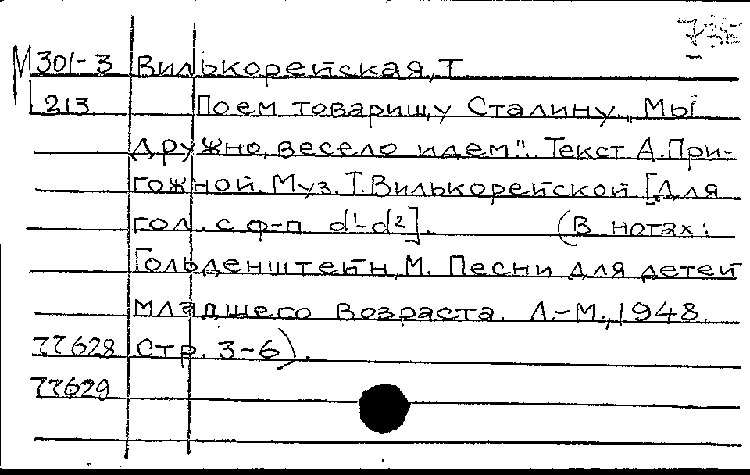 М 301-3 Вилькорейская, Т.
213 Поем товарищу Сталину. „Мы
дружно, весело идем". Текст А. При-
гожной. Муз. Т. Вилькорейской [Для
гол. с ф-п. d¹-d²]. (В нотах:
Гольденштейн, М. Песни для детей
младшего возраста. Л.-М., 1948.
77628 Стр. 3-6).
77629